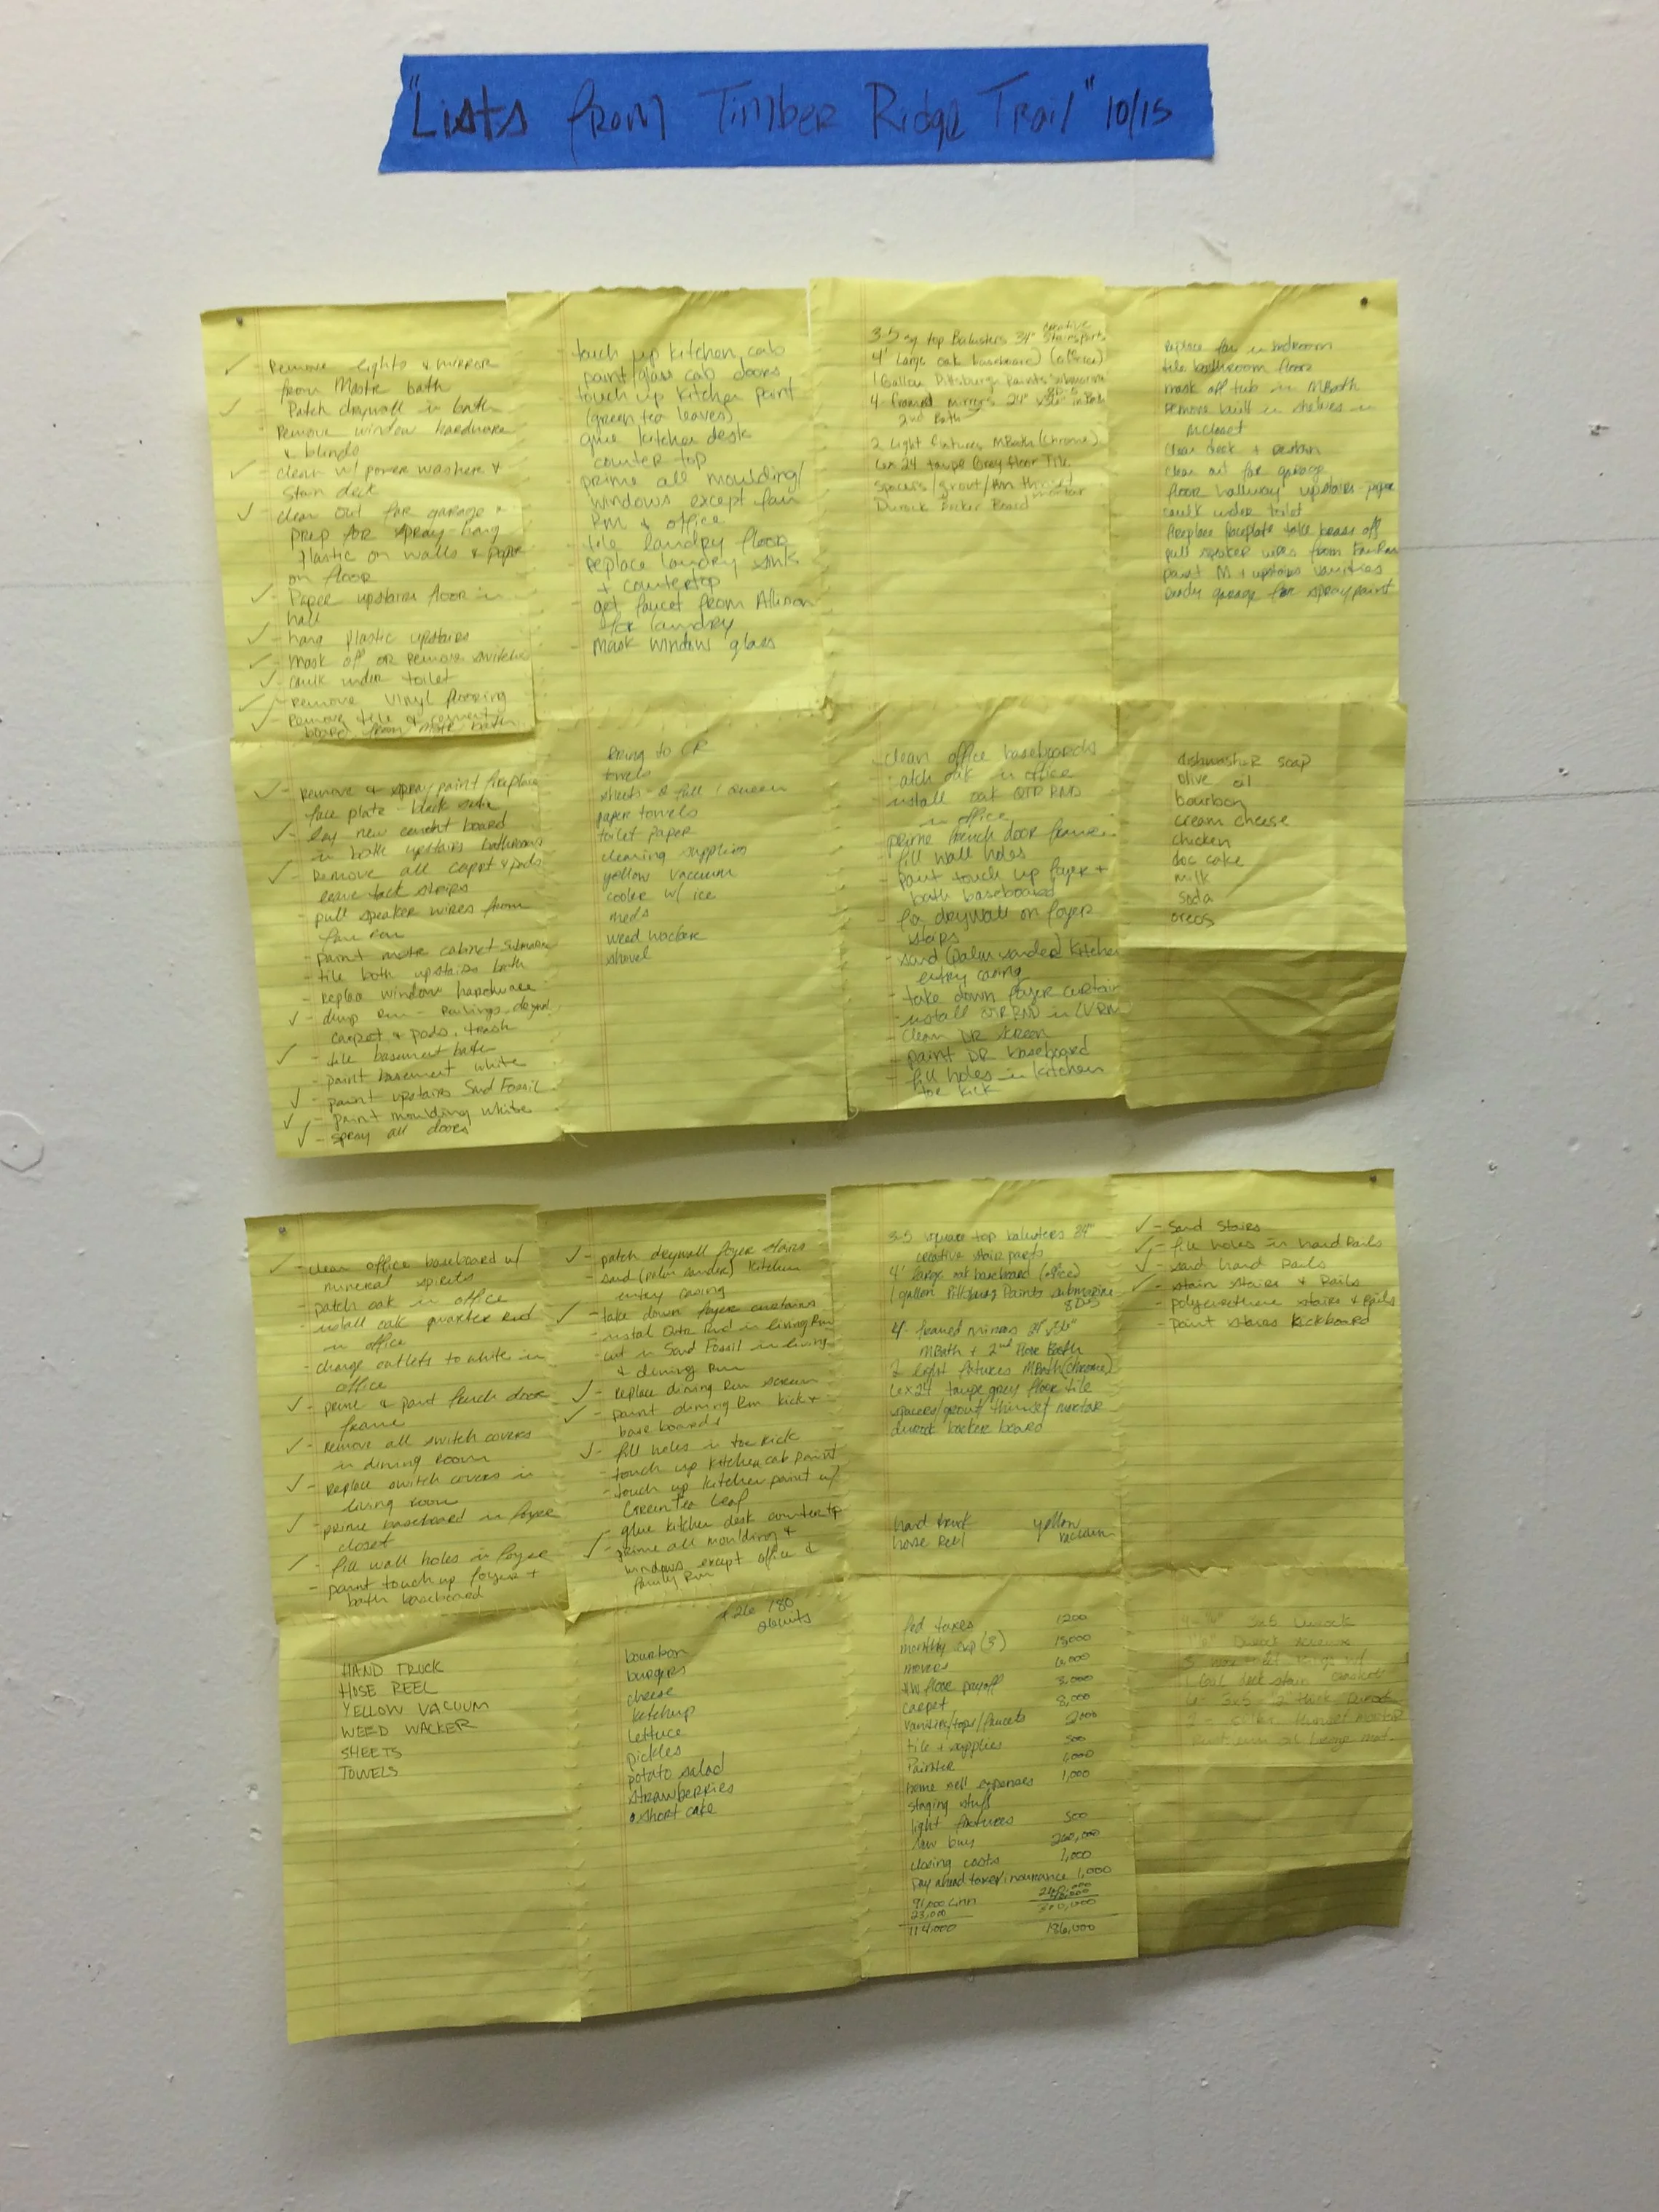 "Lists from Timber Ridge Trail" 10/15
✓- Remove lights & mirror
from Mastr bath
✓- Patch drywall in bath
Remove window hardware
& blinds
✓- clean w/ power washer &
stain deck
✓- clean out far garage &
prep for spray-hang
plastic on walls & paper
on floor
✓- Paper upstairs floor in
hall
✓- hang plastic upstairs
✓- mask off or remove switches
✓- caulk under toilet
✓- remove vinyl flooring
✓- Remove tile & cement
board from mstr bath
- touch up kitchen cab
paint/glass cab doors
- touch up kitchen paint
(green tea leaves)
- glue kitchen desk
counter top
- prime all moulding/
windows except fam
Rm & office
- tile laundry floor
- replace laundry sink
+ countertop
- get faucet from Allison
for laundry
- mask window glass
3-5 sq top Balusters 34" creative Stairparts
4' Large oak baseboard (office)
1 Gallon Pittsburgh Paints submarine
4 framed mirrors 24" x 36" in
2nd Bath
2 Light fixtures MBath (chrome)
6x24 taupe Grey floor Tile
spacers/grout/ thinset mortar
Durock Backer Board
replace fan in bedroom
tile bathroom floor
mask off tub in MBath
remove built in shelves in
clean deck + restain
clean out far garage
floor hallway upstairs-paper
caulk under toilet
fireplace faceplate take brass off
pull speaker wires from FamRm
paint M + upstairs vanities
ready garage for spray paint
✓- Remove & spray paint fireplace
face plate - black satin
✓- lay new cement board
in both upstairs bathrooms
✓- Remove all carpet & pads
leave tack strips
- pull speaker wires from
fam Rm
- paint mstr cabinet submarine
- tile both upstairs bath
- replace window hardware
✓- dump run - railings,
carpet & pads, trash
✓- tile basement bath
- paint basement white
✓- paint upstairs Sand Fossil
✓- paint moulding white
✓- spray all doors
Bring to CR
towels
sheets-2 full 1 queen
paper towels
toilet paper
cleaning supplies
yellow vacuum
cooler w/ ice
meds
weed wacker
shovel
- clean office baseboards
- patch oak in office
- install oak QTR RND
in office
prime french door frame
- fill wall holes
- paint touch up foyer +
bath baseboard
- fix drywall on foyer
stairs
- sand (palm sander) kitchen
entry casing
- take down foyer curtain
- install QTR RND in LVRM
- clean DR screen
- paint DR baseboard
- fill holes in kitchen
toe kick
dishwasher soap
olive oil
bourbon
cream cheese
chicken
doc cake
milk
soda
oreos
✓- clean office baseboard w/
mineral spirits
- patch oak in office
- install oak quarter rnd
in office
- change outlets to white in
office
✓- prime & paint french door
frame
✓- remove all switch covers
in dining room
✓- replace switch covers in
living room
✓- prime baseboard in foyer
closet
✓- fill wall holes in foyer
- paint touch up foyer +
bath baseboard
✓- patch drywall foyer stairs
- sand (palm sander) kitchen
entry casing
✓- take down foyer curtains
- instal Qtr Rnd in living Rm
- cut in Sand Fossil in living
& dining Rm
✓- replace dining Rm screen
✓- paint dining Rm kick +
base boards
✓- fill holes in toe kick
- touch up kitchen cab paint
- touch up kitchen paint w/
Green Tea Leaf
- glue kitchen desk countertop
✓- prime all moulding &
windows except office &
family Rm
3-5 square top balusters 34"
creative stair parts
4' large oak baseboard (office)
1 gallon Pittsburg Paints submarine
4 framed mirrors 24"x36"
MBath + 2nd floor Bath
2 light fixtures MBath (chrome)
6x24 taupe grey floor tile
spacers/grout/thinset mortar
durock backer board
hand truck yellow
hose reel vacuum
✓- Sand Stairs
✓- fill holes in hand Rails
✓- sand hand Rails
✓- stain stairs & Rails
- polyurethane stairs & Rails
- paint stairs kickboard
HAND TRUCK
HOSE REEL
YELLOW VACUUM
WEED WACKER
SHEETS
TOWELS
bourbon
burgers
cheese
ketchup
lettuce
pickles
potato salad
strawberries
short cake
fed taxes 1200
monthly exp (3) 15,000
movers 6,000
HW floor payoff 3,000
carpet 8,000
vanities/tops/faucets 2000
tile + supplies 500
Painter 1,000
home sell expenses 1,000
staging stuff
light fixtures 500
new buy 260,000
closing costs 1,000
pay ahead taxes/insurance 1,000
91,000
23,000 300,000
114,000 186,000
3x5 Durock